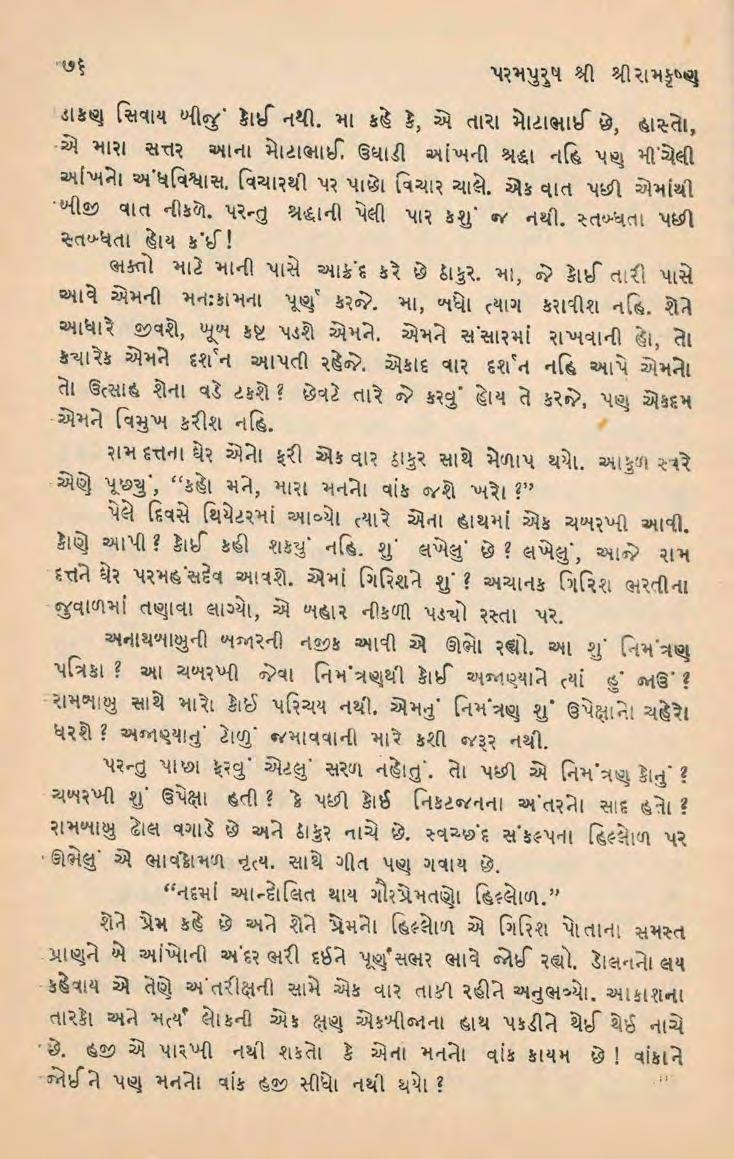 ૭૬
પરમપુરુષ શ્રી શ્રીરામકૃષ્ણ
ડાકણ સિવાય બીજું કોઈ નથી. મા કહે કે, એ તારા મોટાભાઈ છે, હાસ્તો,
એ મારા સત્તર આના મોટાભાઈ. ઉઘાડી આંખની શ્રદ્ધા નહિ પણ મીંચેલી
આંખનો અંધવિશ્વાસ. વિચારથી પર પાછો વિચાર ચાલે. એક વાત પછી એમાંથી
બીજી વાત નીકળે. પરન્તુ શ્રદ્ધાની પેલી પાર કશું જ નથી. સ્તબ્ધતા પછી
સ્તબ્ધતા હોય કંઈ!
ભક્તો માટે માની પાસે આક્રંદ કરે છે ઠાકુર. મા, જે કોઈ તારી પાસે
આવે એમની મનઃકામના પૂર્ણ કરજે. મા, બધો ત્યાગ કરાવીશ નહિ. શેને
આધારે જીવશે, ખૂબ કષ્ટ પડશે એમને. એમને સંસારમાં રાખવાની હો, તો
ક્યારેક એમને દર્શન આપતી રહેજે. એકાદ વાર દર્શન નહિ આપે એમનો
તો ઉત્સાહ શેના વડે ટકશે? છેવટે તારે જે કરવું હોય તે કરજે, પણ એકદમ
એમને વિમુખ કરીશ નહિ.
રામ દત્તના ઘેર એનો ફરી એક વાર ઠાકુર સાથે મેળાપ થયો. આકુળ સ્વરે
એણે પૂછ્યું, “કહો મને, મારા મનનો વાંક જશે ખરો ?”
પેલે દિવસે થિયેટરમાં આવ્યો ત્યારે એના હાથમાં એક ચબરખી આવી.
કોણે આપી? કોઈ કહી શક્યું નહિ. શું લખેલું છે? લખેલું, આજે રામ
દત્તને ઘેર પરમહંસદેવ આવશે. એમાં ગિરિશને શું? અચાનક ગિરિશ ભરતીના
જુવાળમાં તણાવા લાગ્યો, એ બહાર નીકળી પડ્યો રસ્તા પર.
અનાથબાબુની બજારની નજીક આવી એ ઊભો રહ્યો. આ શું નિમંત્રણ
પત્રિકા ? આ ચબરખી જેવા નિમંત્રણથી કોઈ અજાણ્યાને ત્યાં હું જાઉં ?
રામબાબુ સાથે મારો કોઈ પરિચય નથી. એમનું નિમંત્રણ શું ઉપેક્ષાનો ચહેરો
ધરશે? અજાણ્યાનું ટોળું જમાવવાની મારે કશી જરૂર નથી.
પરન્તુ પાછા ફરવું એટલું સરળ નહોતું. તો પછી એ નિમંત્રણ કોનું ?
ચબરખી શું ઉપેક્ષા હતી? કે પછી કોઈ નિકટજનના અંતરનો સાદ હતો ?
રામબાબુ ઢોલ વગાડે છે અને ઠાકુર નાચે છે. સ્વચ્છંદ સંકલ્પના હિલ્લોળ પર
ઊભેલું એ ભાવકોમળ નૃત્ય. સાથે ગીત પણ ગવાય છે.
“નદમાં આન્દોલિત થાય ગૌરપ્રેમતણો હિલ્લોળ.”
શેને પ્રેમ કહે છે અને શેને પ્રેમનો હિલ્લોળ એ ગિરિશ પોતાના સમસ્ત
પ્રાણને બે આંખોની અંદર ભરી દઈને પૂર્ણસભર ભાવે જોઈ રહ્યો. ડોલનનો લય
કહેવાય એ તેણે અંતરીક્ષની સામે એક વાર તાકી રહીને અનુભવ્યો. આકાશના
તારકો અને મર્ત્ય લોકની એક ક્ષણ એકબીજાના હાથ પકડીને થેઈ થેઈ નાચે
છે. હજી એ પારખી નથી શકતો કે એના મનનો વાંક કાયમ છે! વાંકાને
જોઈને પણ મનનો વાંક હજી સીધો નથી થયો ?